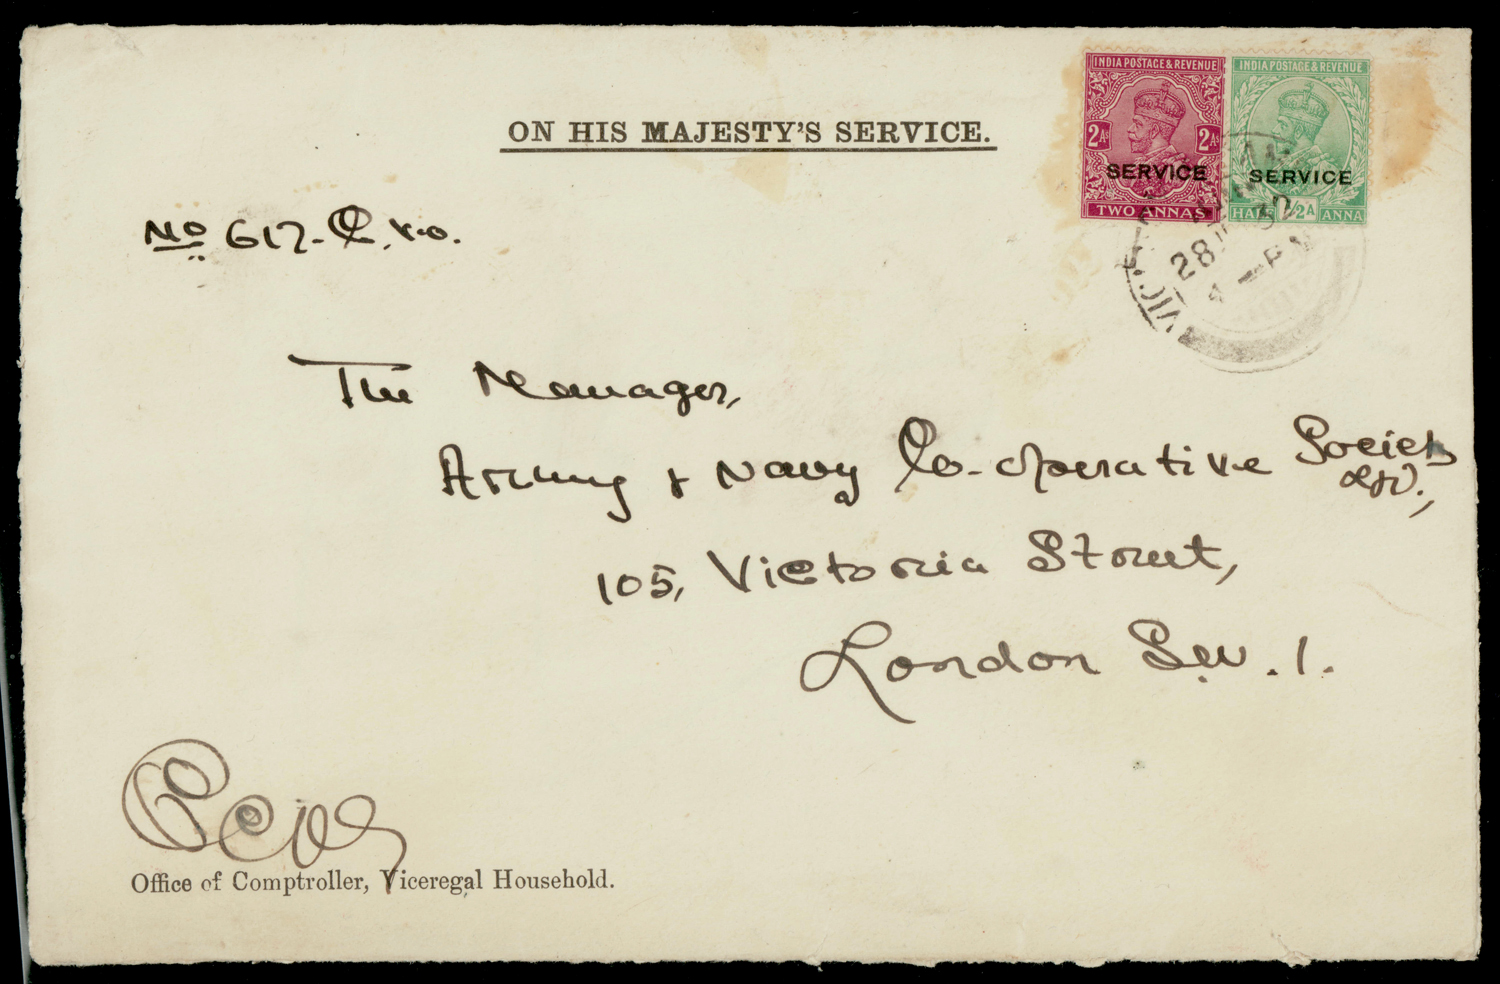 INDIA POSTAGE & REVENUE
2As 2As
SERVICE
TWO ANNAS
INDIA POSTAGE & REVENUE
SERVICE
HALF 1/2A ANNA
ON HIS MAJESTY'S SERVICE.
28 32
No 617-
The Manager,
Army & Navy Co-operative Society
Ltd.,
105, Victoria Street,
London S.W.1.
Office of Comptroller, Viceregal Household.